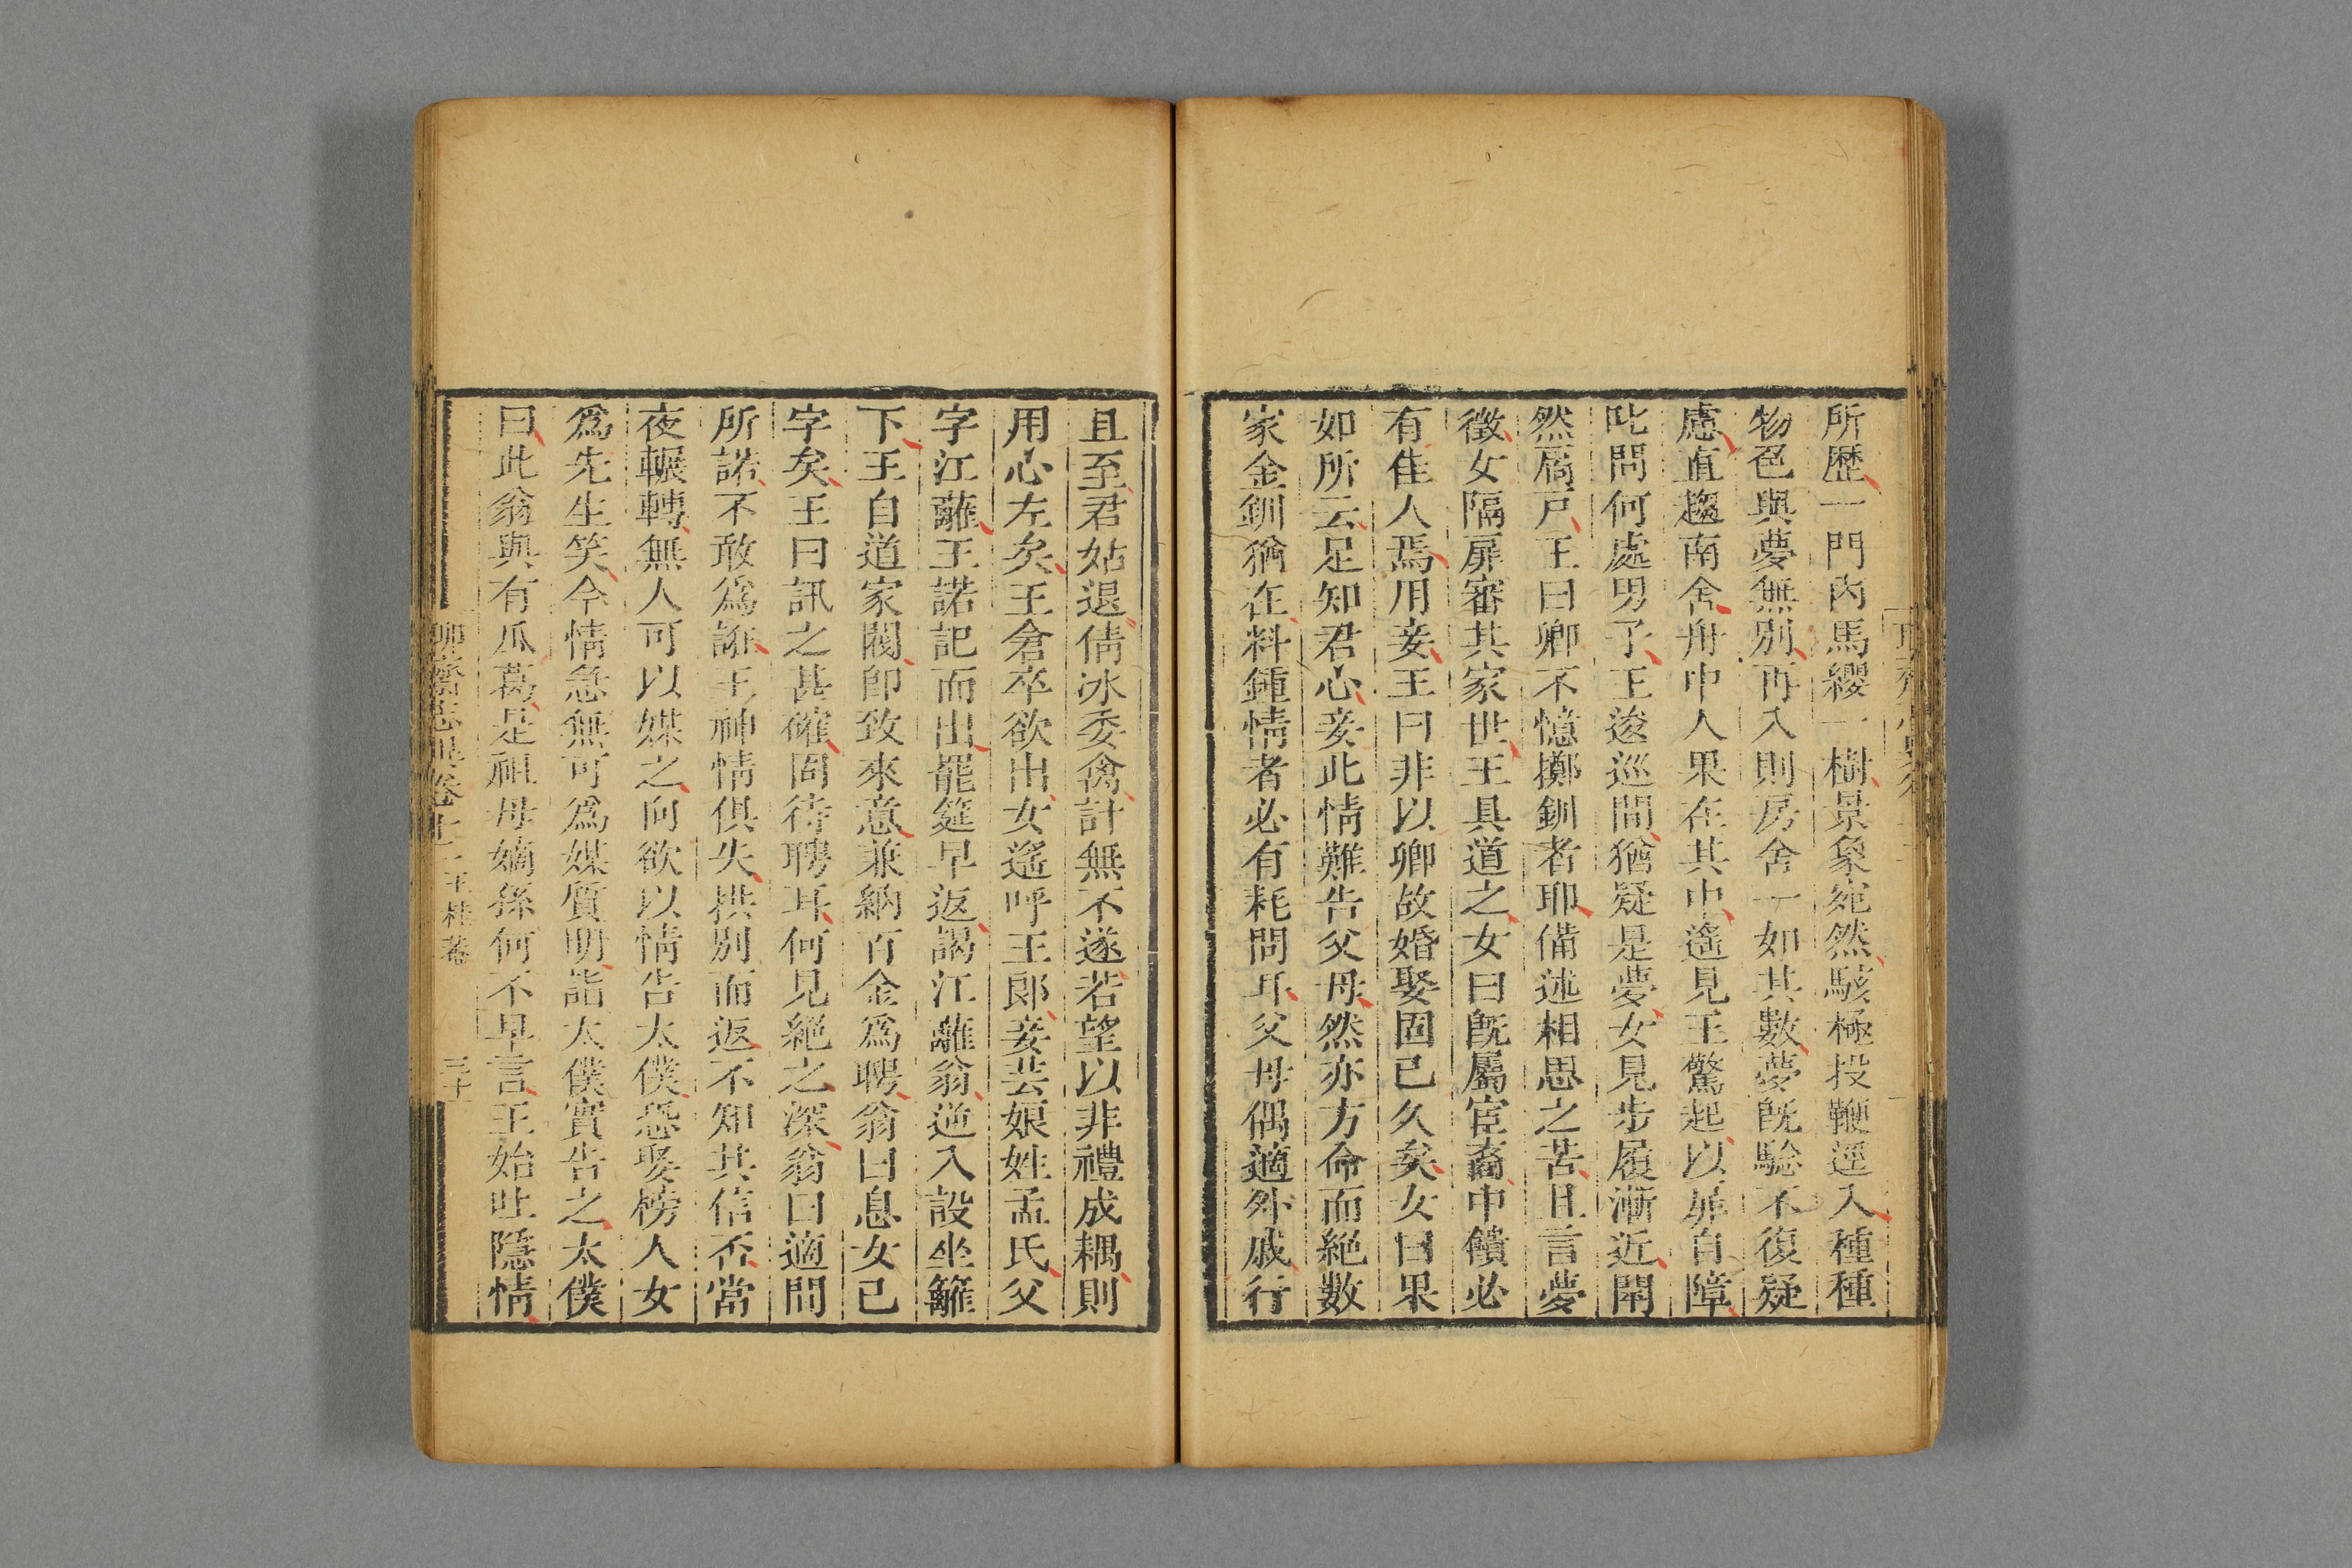 所歷一門內馬纓一樹景象宛然駭極投鞭逕入種種
物色與夢無別再入則房舍一如其數夢旣驗不復疑
慮直趨南舍舟中人果在其中遙見王驚起以扉自障
叱問何處男子王逡巡間猶疑是夢女見步履漸近閛
然扃戸王曰卿不憶擲釧者耶備述相思之苦且言夢
徵女隔扉審其家世王具道之女曰旣屬宦裔中饋必
有佳人焉用妾王曰非以卿故婚娶固已久矣女曰果
如所云足知君心妾此情難告父母然亦方命而絕數
家金釧猶在料鍾情者必有耗問耳父母偶適外戚行
且至君姑退倩冰委禽計無不遂若望以非禮成耦則
用心左矣王倉卒欲出女遙呼王郞妾芸娘姓孟氏父
字江蘺王諾記而出罷筵早返謁江蘺翁逆入設坐籬
下王自道家閥卽致來意兼納百金爲聘翁曰息女已
字矣王曰訊之甚確固待聘耳何見絕之深翁曰適間
所諾不敢爲誑王神情俱失拱別而返不知其信否當
夜輾轉無人可以媒之向欲以情告太僕恐娶榜人女
爲先生笑今情急無可爲媒質明詣太僕實告之太僕
曰此翁與有瓜葛是祖母嫡孫何不早言王始吐隱情
聊齋志異卷十二 王桂菴 三十